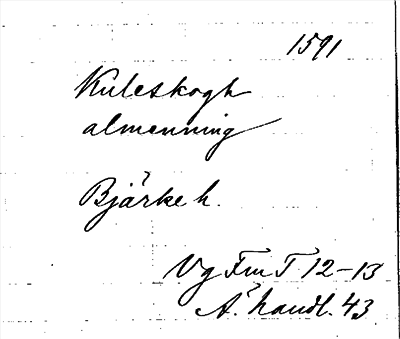 1591
Kuleskogh
almenning
Bjärke h.
Vg FmT 12-13
A. handl. 43